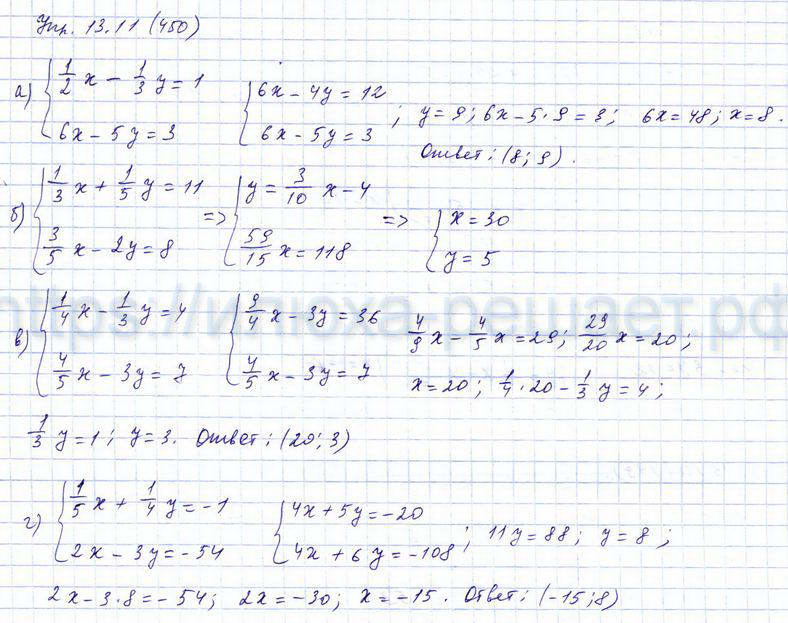 Упр. 13.11 (450)
а) { 1/2 x - 1/3 y = 1
6x - 5y = 3
{ 6x - 4y = 12
6x - 5y = 3 ; y = 9; 6x - 5·9 = 3; 6x = 48; x = 8.
Ответ: (8; 9).
б) { 1/3 x + 1/5 y = 11
3/5 x - 2y = 8
=> { y = 3/10 x - 4
59/15 x = 118
=> { x = 30
y = 5
в) { 1/4 x - 1/3 y = 4
4/5 x - 3y = 7
{ 9/4 x - 3y = 36
4/5 x - 3y = 7
4/9 x - 4/5 x = 29; 29/20 x = 20;
x = 20; 1/4 · 20 - 1/3 y = 4;
1/3 y = 1; y = 3. Ответ: (20; 3)
г) { 1/5 x + 1/4 y = -1
2x - 3y = -54
{ 4x + 5y = -20
4x + 6y = -108 ; 11y = 88; y = 8;
2x - 3·8 = -54; 2x = -30; x = -15. Ответ: (-15; 8)
https://илюха-решает.рф